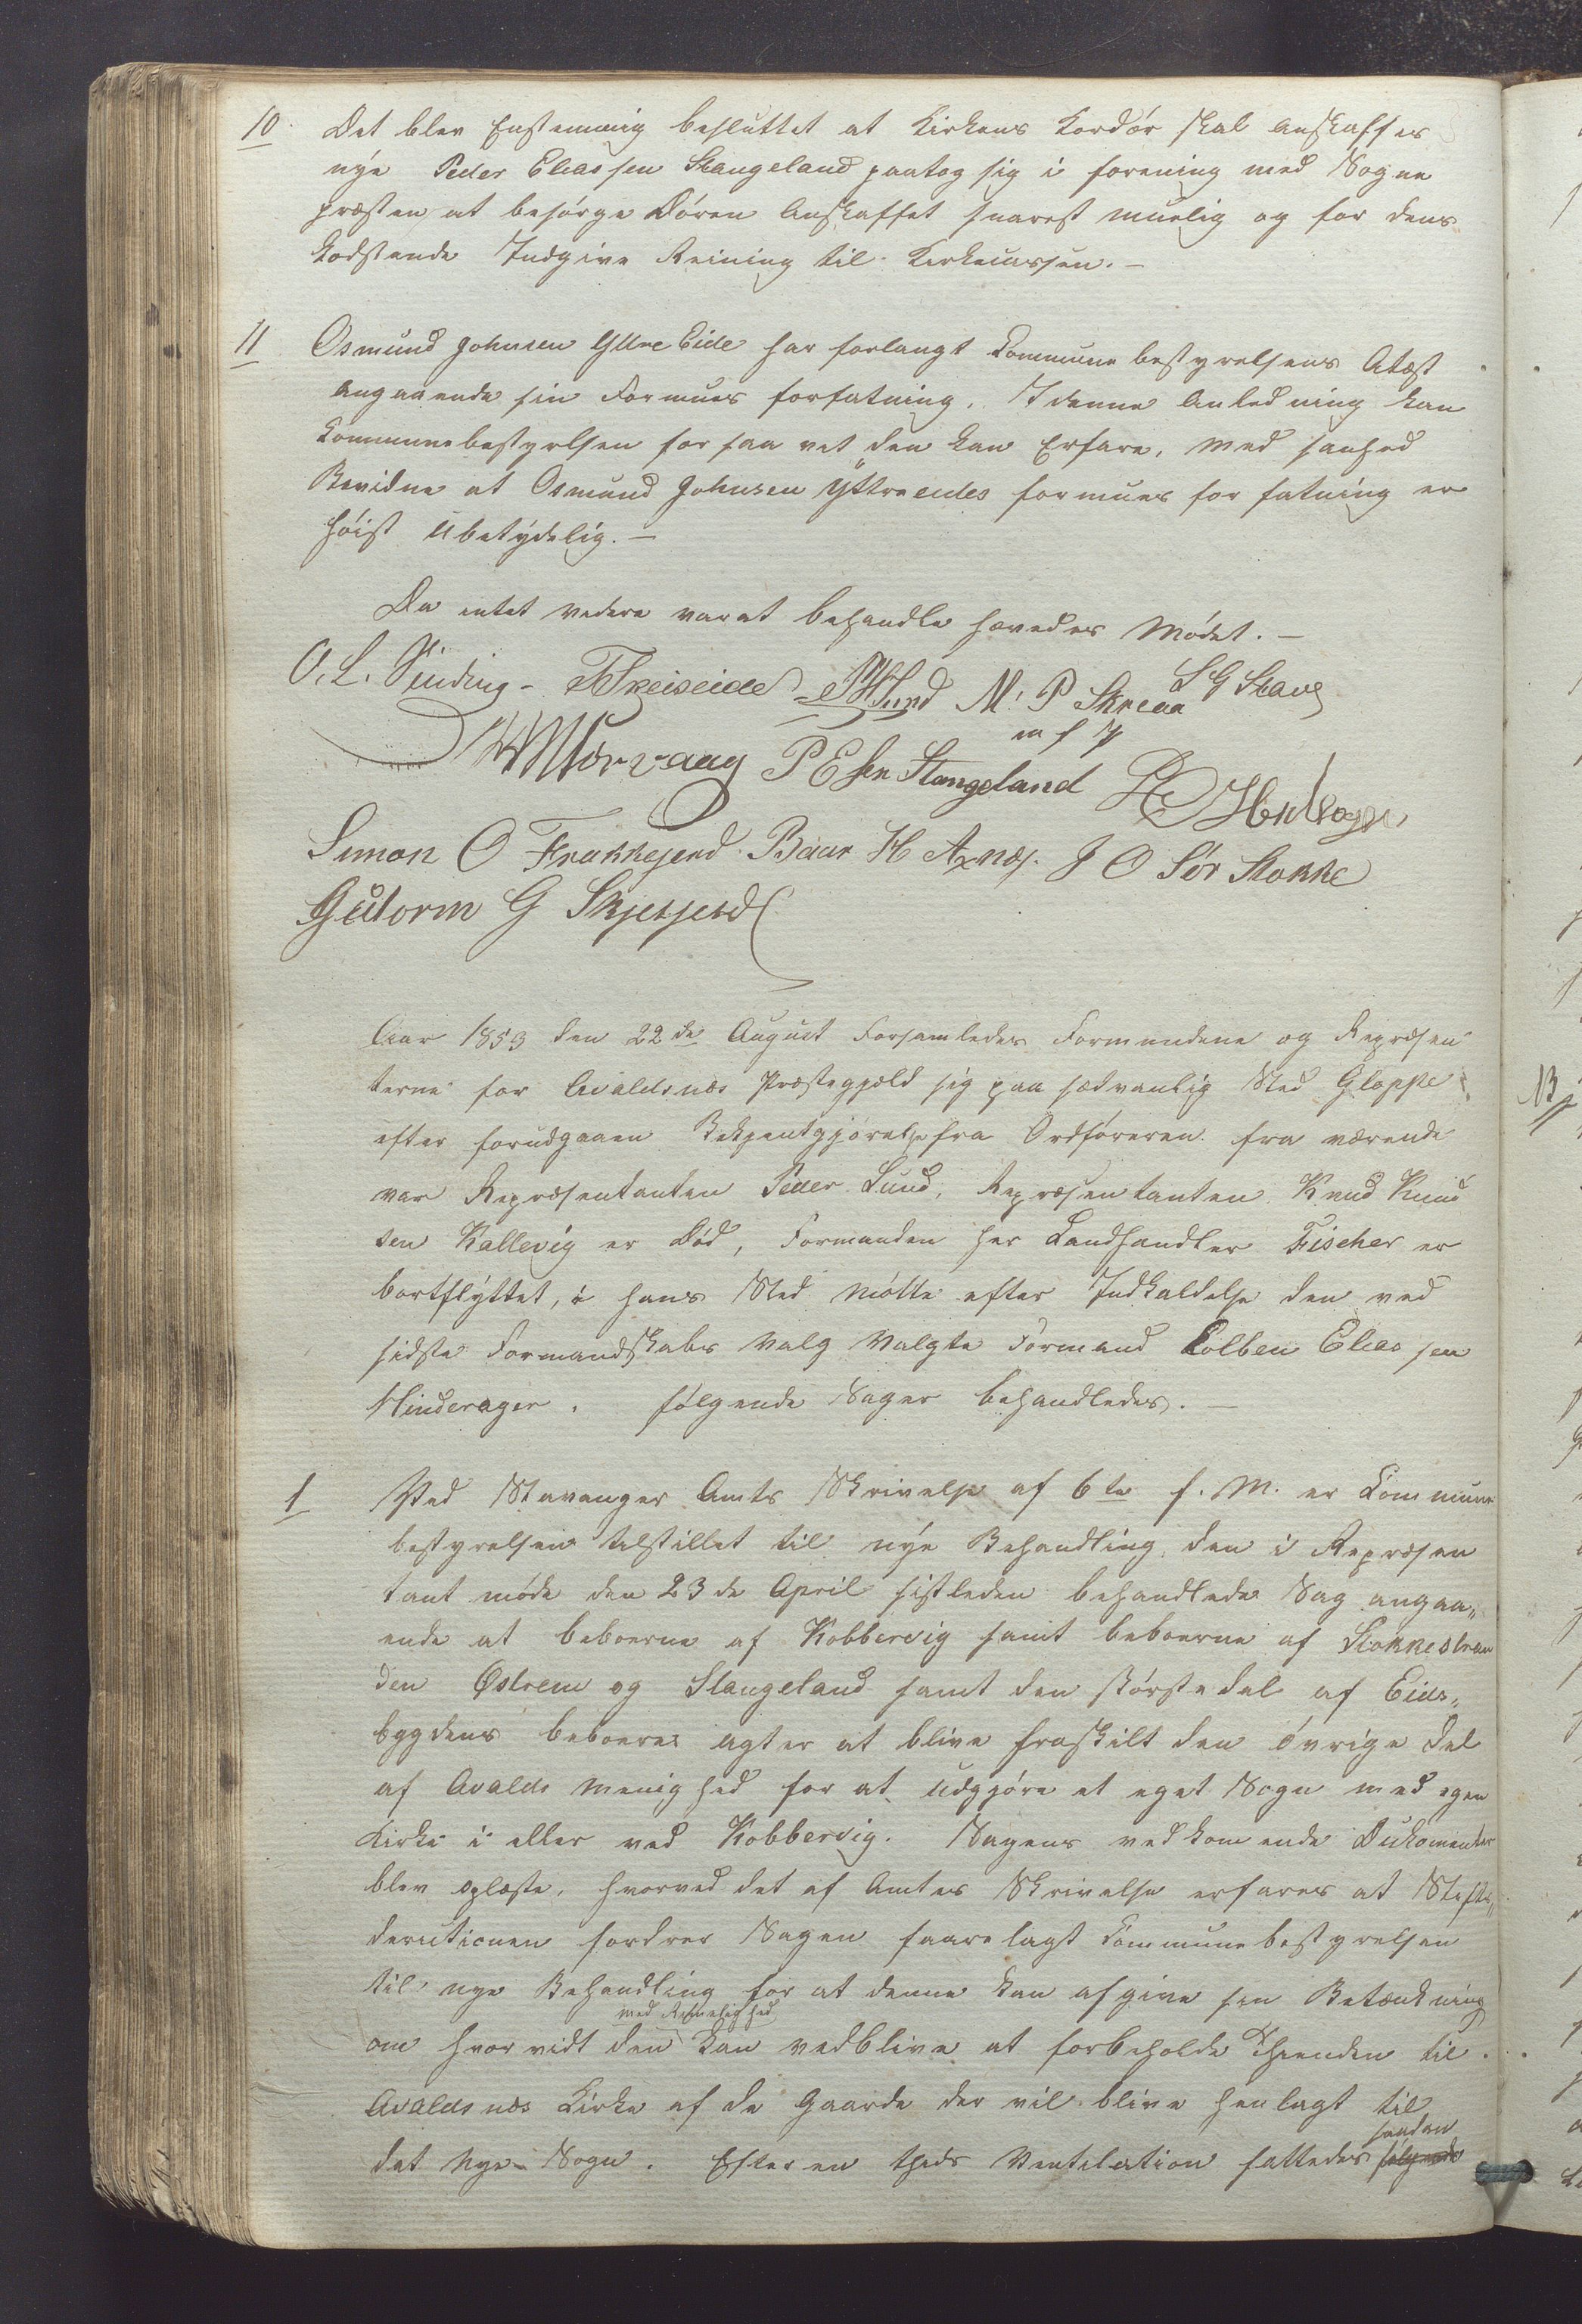 10. Det blev Enstemmig besluttet at Kirkens Kordör skal anskaffes
nÿe Peder Eliassen Stangeland paatog sig i forening med Sogne
præsten at besörge Dören Anskaffet snarest muelig og for dens
kodstende Indgive Reining til Kirkecassen. —
11 Osmund Johnsen Yttre Eide har forlangt Kommunebestyrelsens Atæst
angaaende sin Formues forfatning. I denne Anledning kan
Kommunebestyrelsen for saa vet den kan Erfare, med sanhed
Bevidne at Osmund Johnsen Ÿttreeides formues forfatning er
höist ubetÿdelig. —
Da intet vedere var at behandle hævedes Mödet. —
O. L. Sinding - T Skeiseide P H Lund M. P Skreaa L G Stave
m f P
Storvaag P E sen Stangeland
Simon O Frakkesjerd Baar H Axnæs J O Sör Stokke
Gutorm G Skjersjerd
Aar 1853 den 22de August Forsamledes Formendene og Represen
terne for Avaldsnæs Præstegjæld sig paa sædvanlig Sted Gloppe
efter forudgaaen Bekjentgjörelse fra Ordföreren. fra værende
var Repræsentanten Peder Lund, Repræsentanten Knud Knud
sen Kallevig er död, Formanden her Landhandler Fischer er
bortflÿttet, i hans Sted mötte efter Indkaldelse den ved
sidste Formandskabs Valg Valgte Formand Kolben Elias sen
Hinderager. fölgende Sager behandledes. —
1 Ved Stavanger Amts Skrivelse af 6te f. M. er Kommune
bestyrelsen tilstillet til nÿe Behandling den i Repræsen
tant möde den 23de April sistleden behandlede Sag angaa„
ende at beboerne af Kobbervig samt beboerne af Stokkestran
den Østrem og Stangeland samt den störstedel af Eids„
bygdens beboere agter at blive fraskilt den övrige Del
af Avalds menighed for at udgjöre et eget Sogn med egen
Kirke i eller ved Kobbervig. Sagens vedkomende Dukomenter
blev oplæste, hvorved det af Amtes Skrivelse erfares at Stifts„
derectionen fordrer Sagen faarelagt Kommunebestyrelsen
til nye Behandling for at denne kan afgive sin Betænkning
med Rimelighed
om hvorvidt den kan vedblive at forbeholde Thienden til
Avaldsnæs Kirke af de Gaarde der vil blive henlagt til
saadan
det Nye Sogn. Efter en theds Ventelation fattedes fölgende